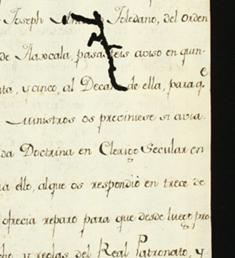 Joseph Toledano, del orden
de Tlaxcala, pasasteis aviso en quin-
ta, y cinco, al Decan de ella, para q.e
Ministros os previniese si avia
da Doctrina en Clerigo Secular en
a ello, al que os respondió en trece de
ofrecia reparo para que desde luego pro
y reglas del Real Patronato, y